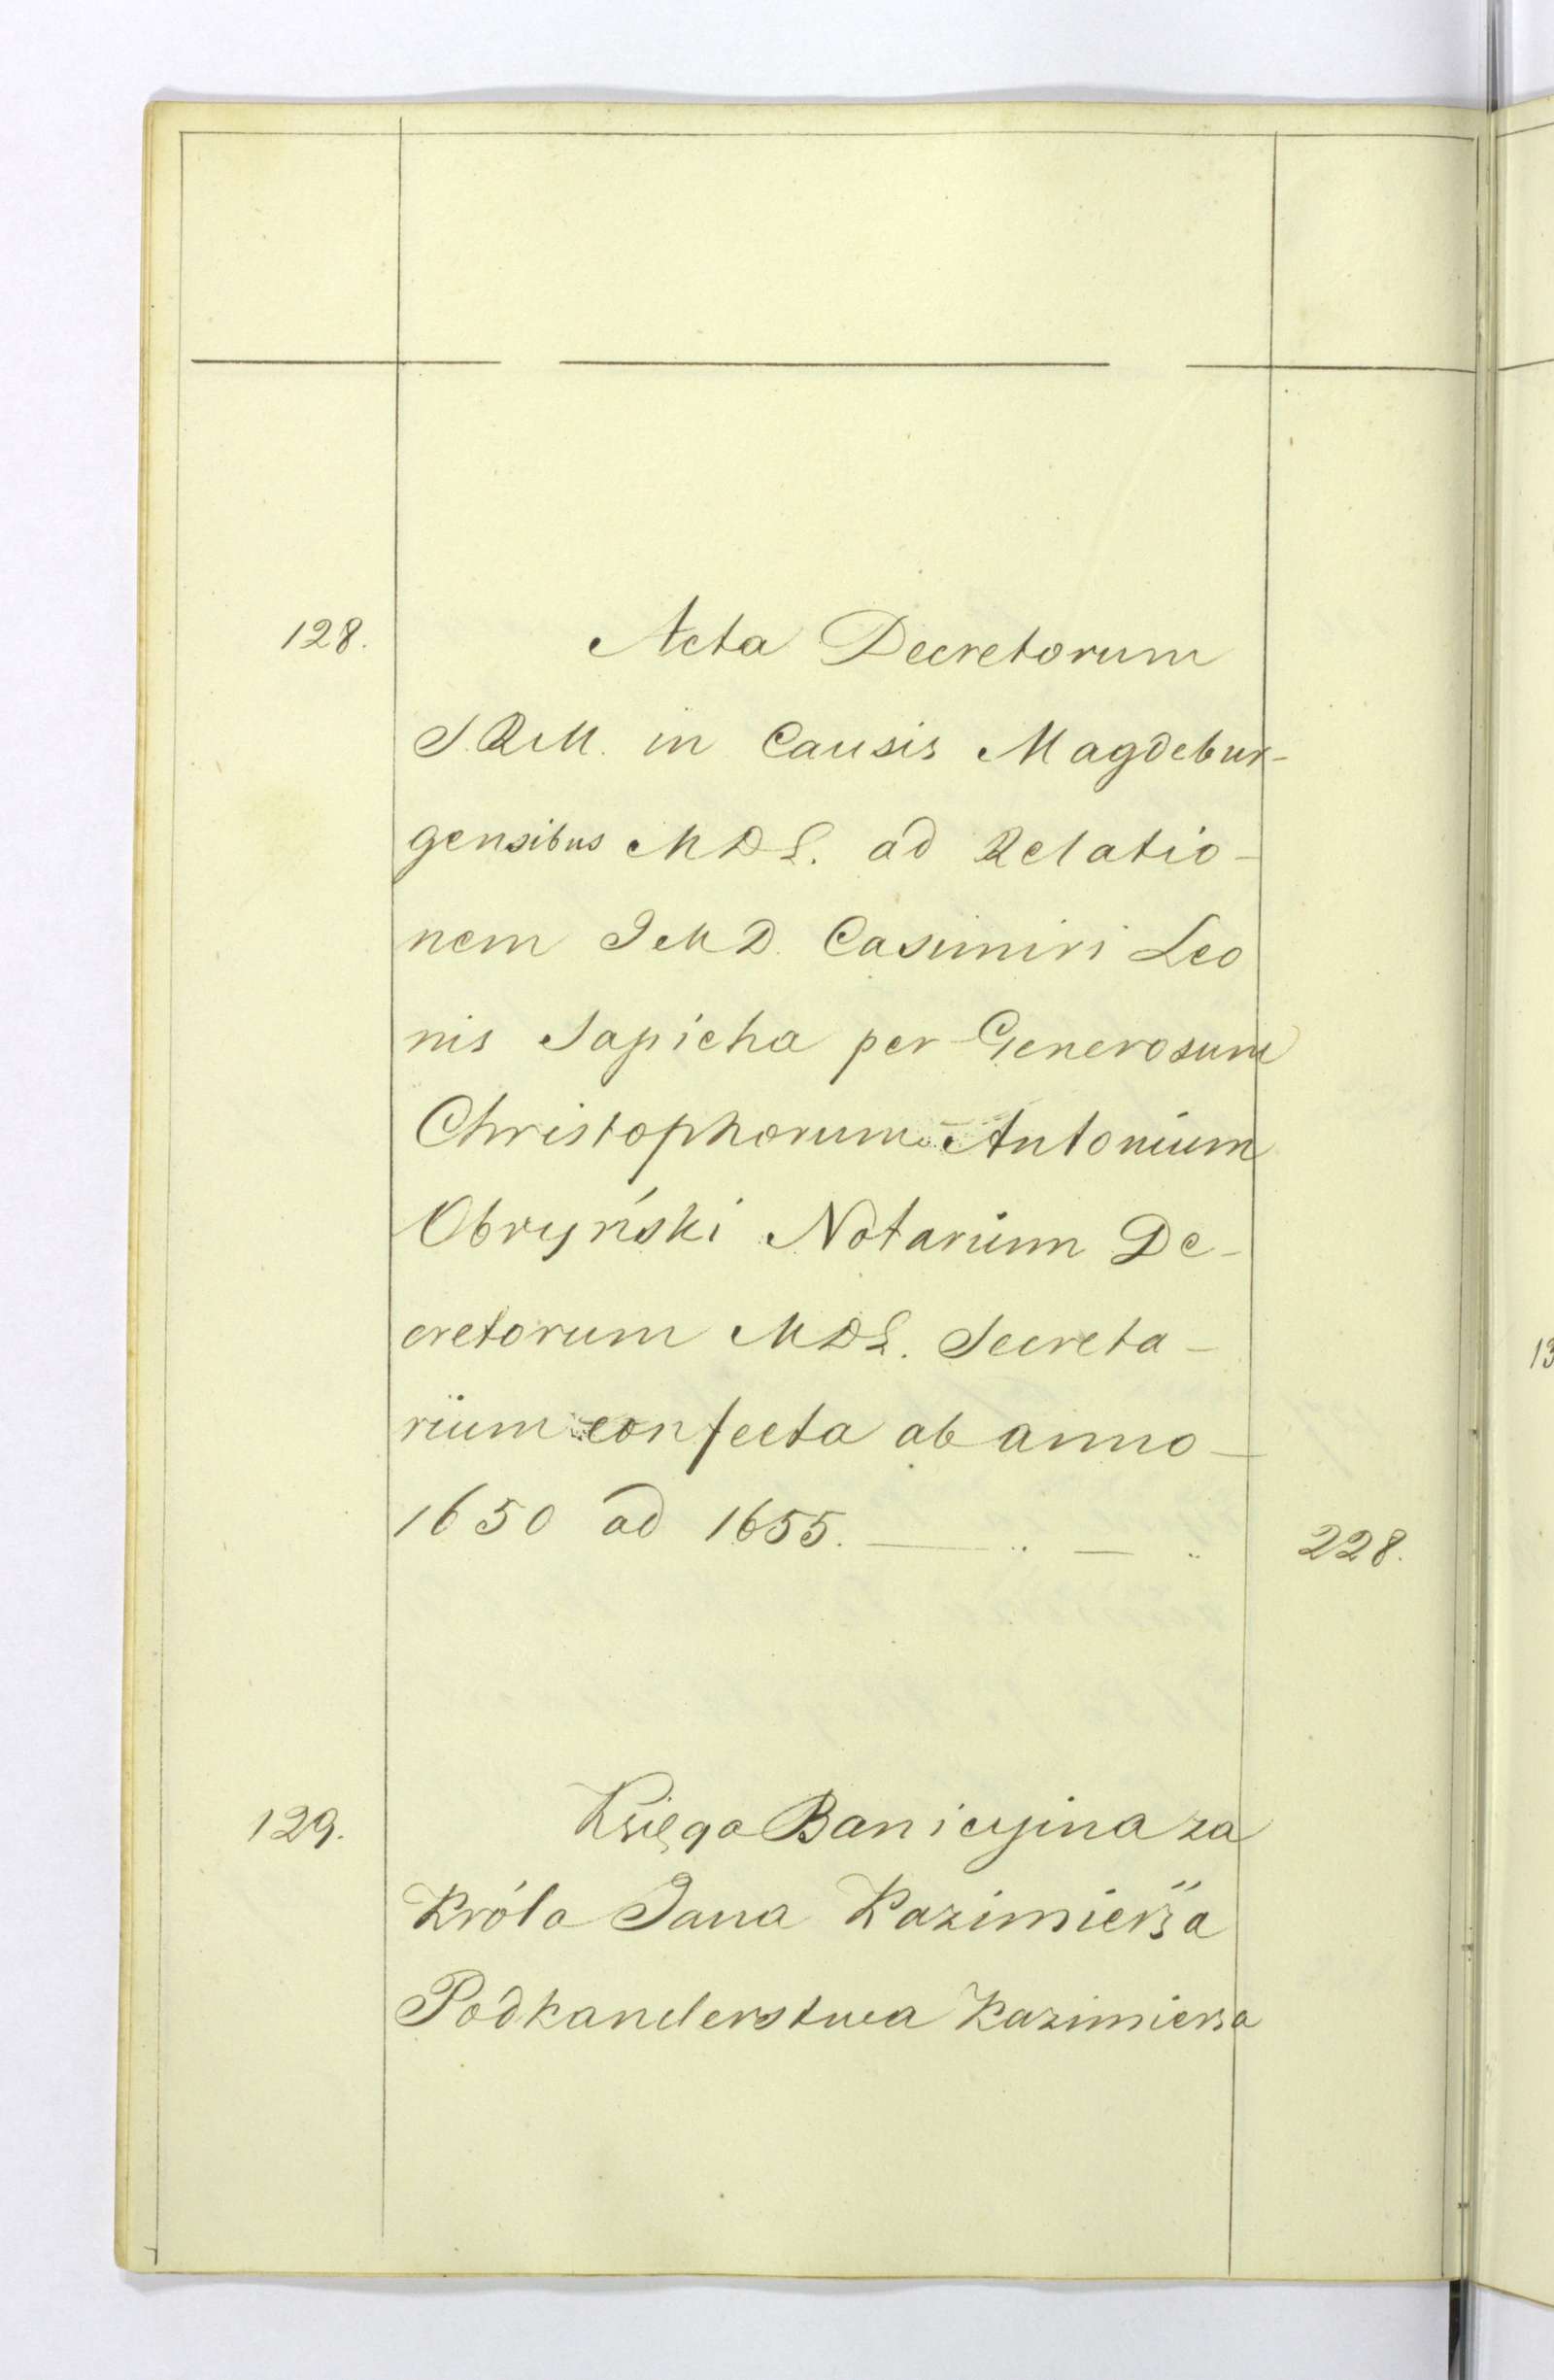 128. Acta Decretorum
S.R.M. in Causis Magdebur-
gensibus MDL. ad Relatio-
nem JMD. Casimiri Leo
nis Sapieha per Generosum
Christophorum Antonium
Obryński Notarium De-
cretorum MDL. Secreta-
rium confecta ab anno
1650 ad 1655. 228.
129. Księga Banicyjna za
Króla Jana Kazimierza
Podkanclerstwa Kazimierza
13